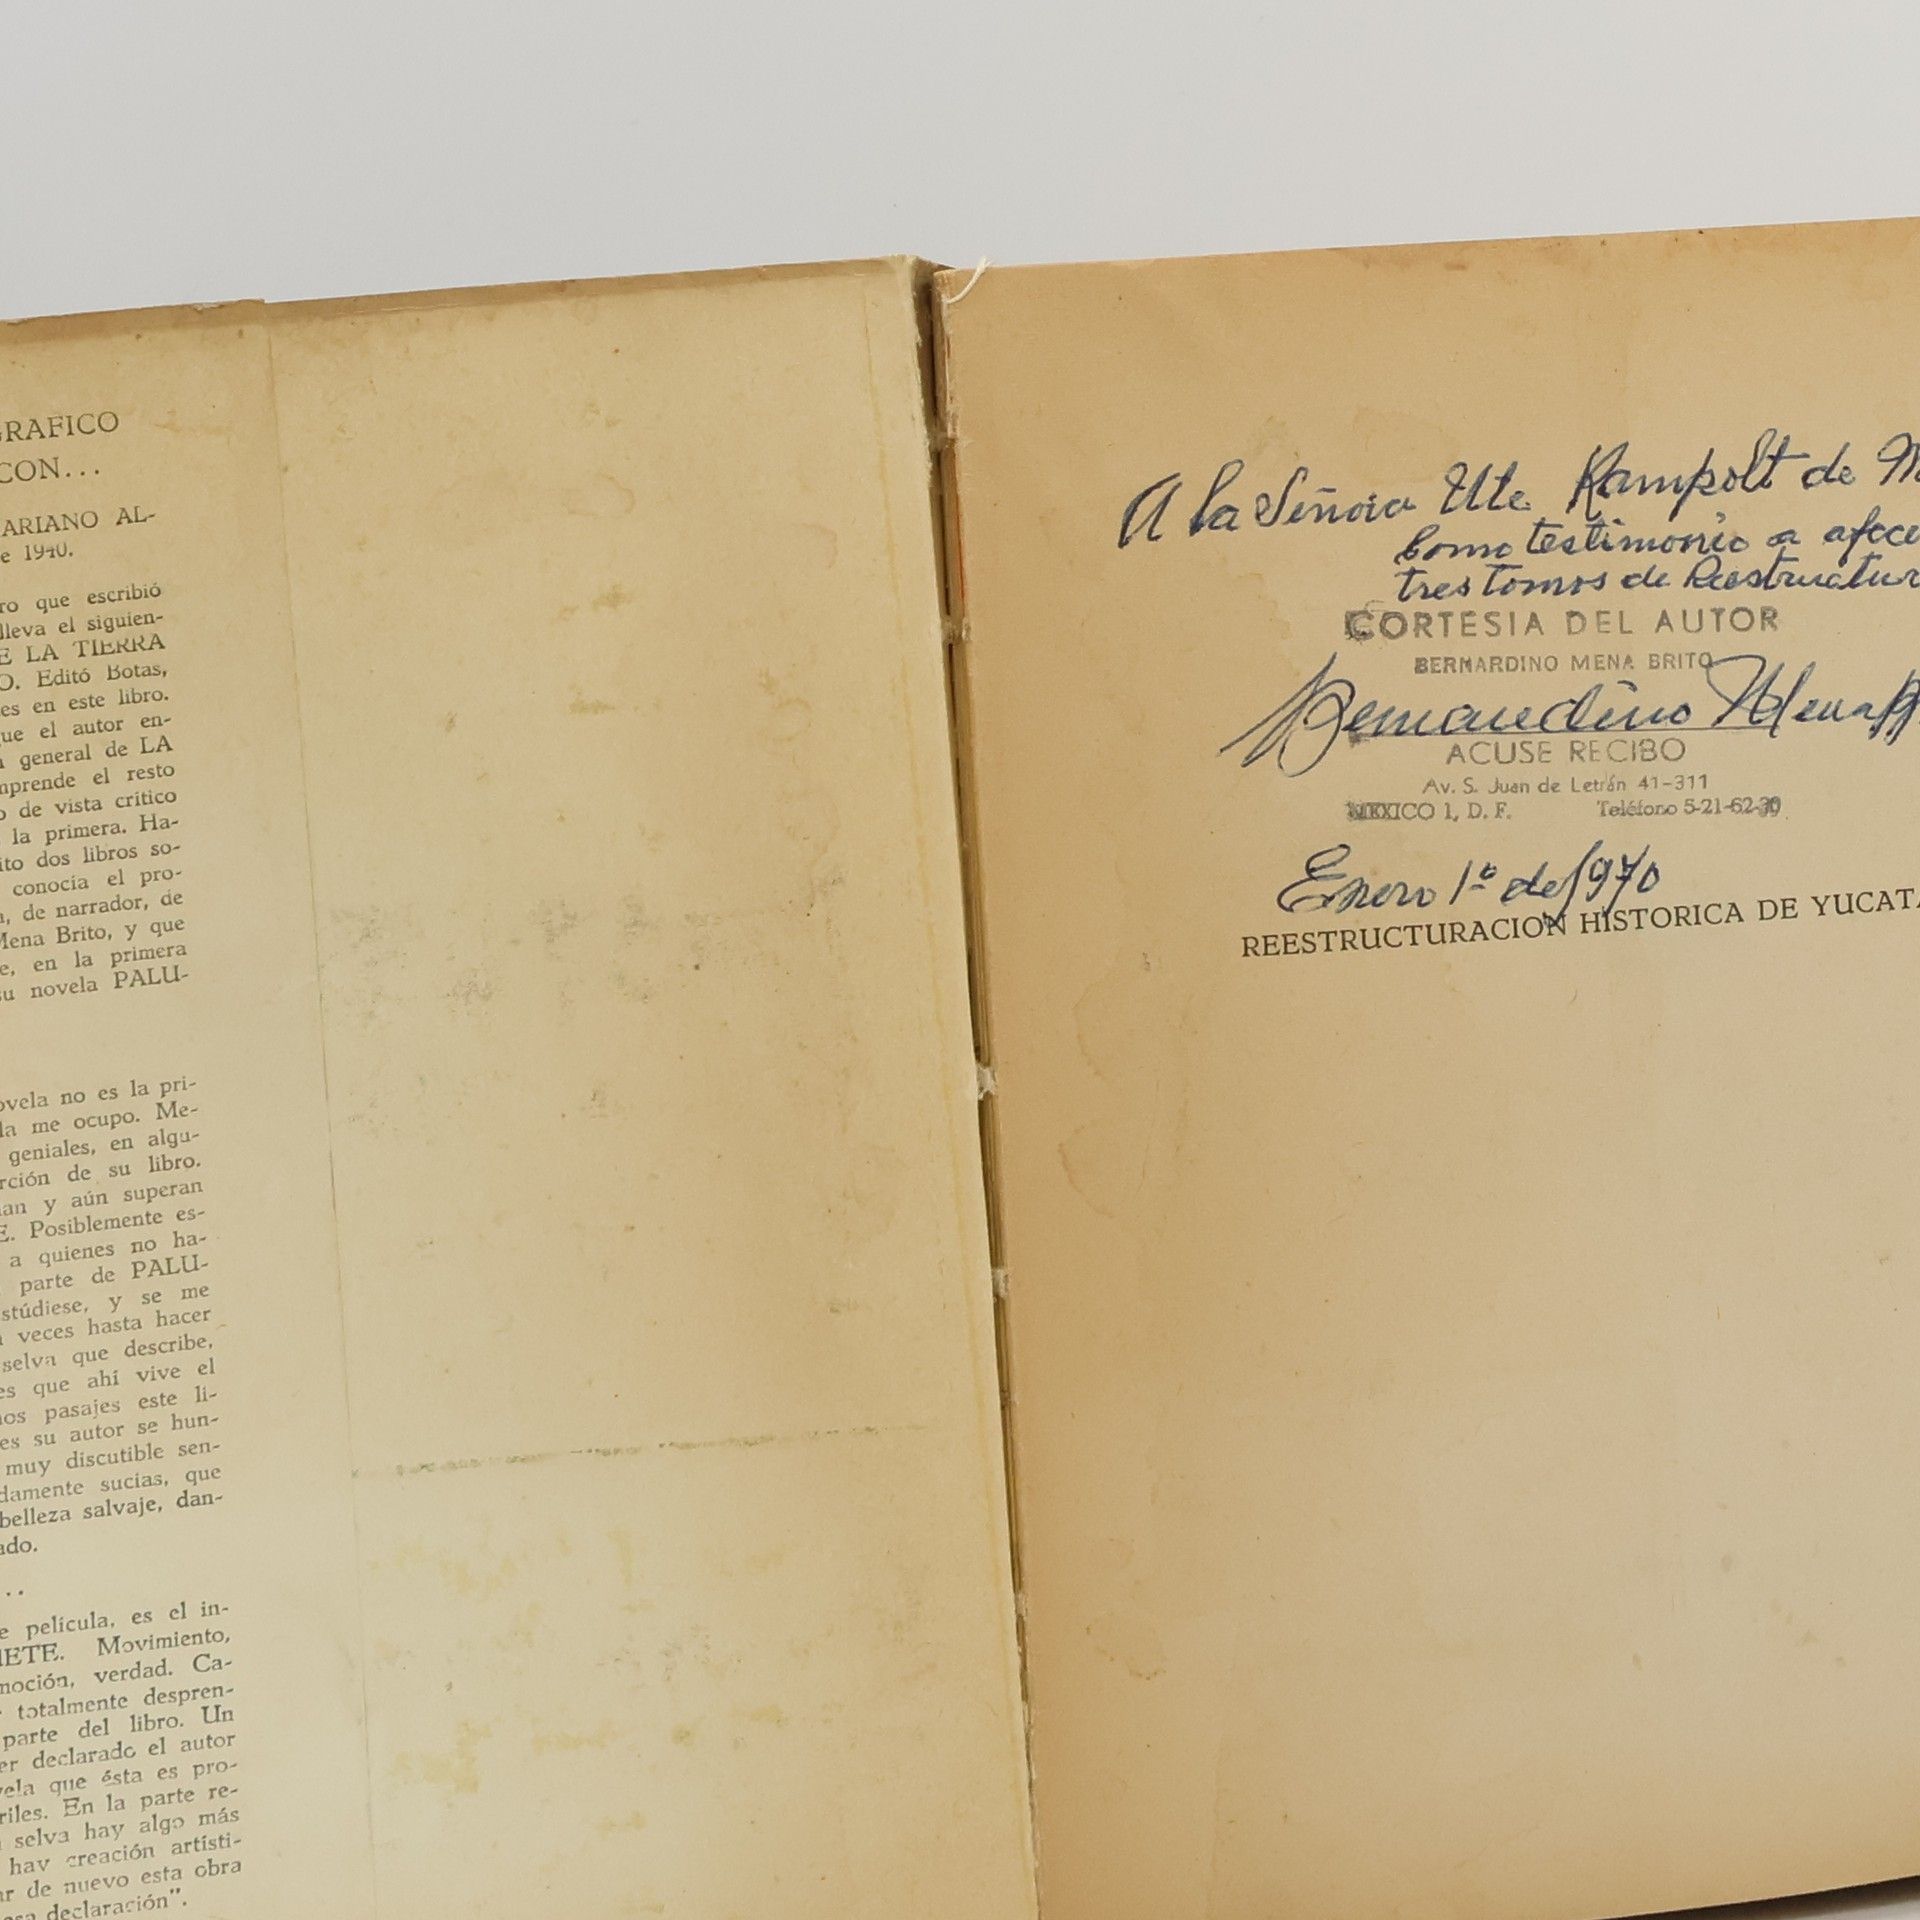 GRAFICO
CON...
ARIANO AL-
e 1940.
ro que escribió
lleva el siguien-
E LA TIERRA
O. Editó Botas,
es en este libro.
que el autor en-
general de LA
mprende el resto
o de vista crítico
la primera. Ha-
ito dos libros so-
conocía el pro-
a, de narrador, de
Mena Brito, y que
e, en la primera
su novela PALU-
ovela no es la pri-
la me ocupo. Me-
geniales, en algu-
rción de su libro.
nan y aún superan
E. Posiblemente es-
a quienes no ha-
parte de PALU-
stúdiese, y se me
a veces hasta hacer
selva que describe,
es que ahí vive el
nos pasajes este li-
es su autor se hun-
muy discutible sen-
damente sucias, que
belleza salvaje, dan-
ado.
..
e película, es el in-
HETE. Movimiento,
moción, verdad. Ca-
totalmente despren-
parte del libro. Un
er declarado el autor
vela que ésta es pro-
riles. En la parte re-
selva hay algo más
hay creación artísti-
ar de nuevo esta obra
esa declaración".
A la Señora Ute Rampolt de M
Como testimonio a afec
tres tomos de Reestructur
CORTESIA DEL AUTOR
BERNARDINO MENA BRITO
Bernardino Mena B
ACUSE RECIBO
Av. S. Juan de Letrán 41-311
MEXICO 1, D. F. Teléfono 5-21-62-30
Enero 1º de 1970
REESTRUCTURACION HISTORICA DE YUCATA